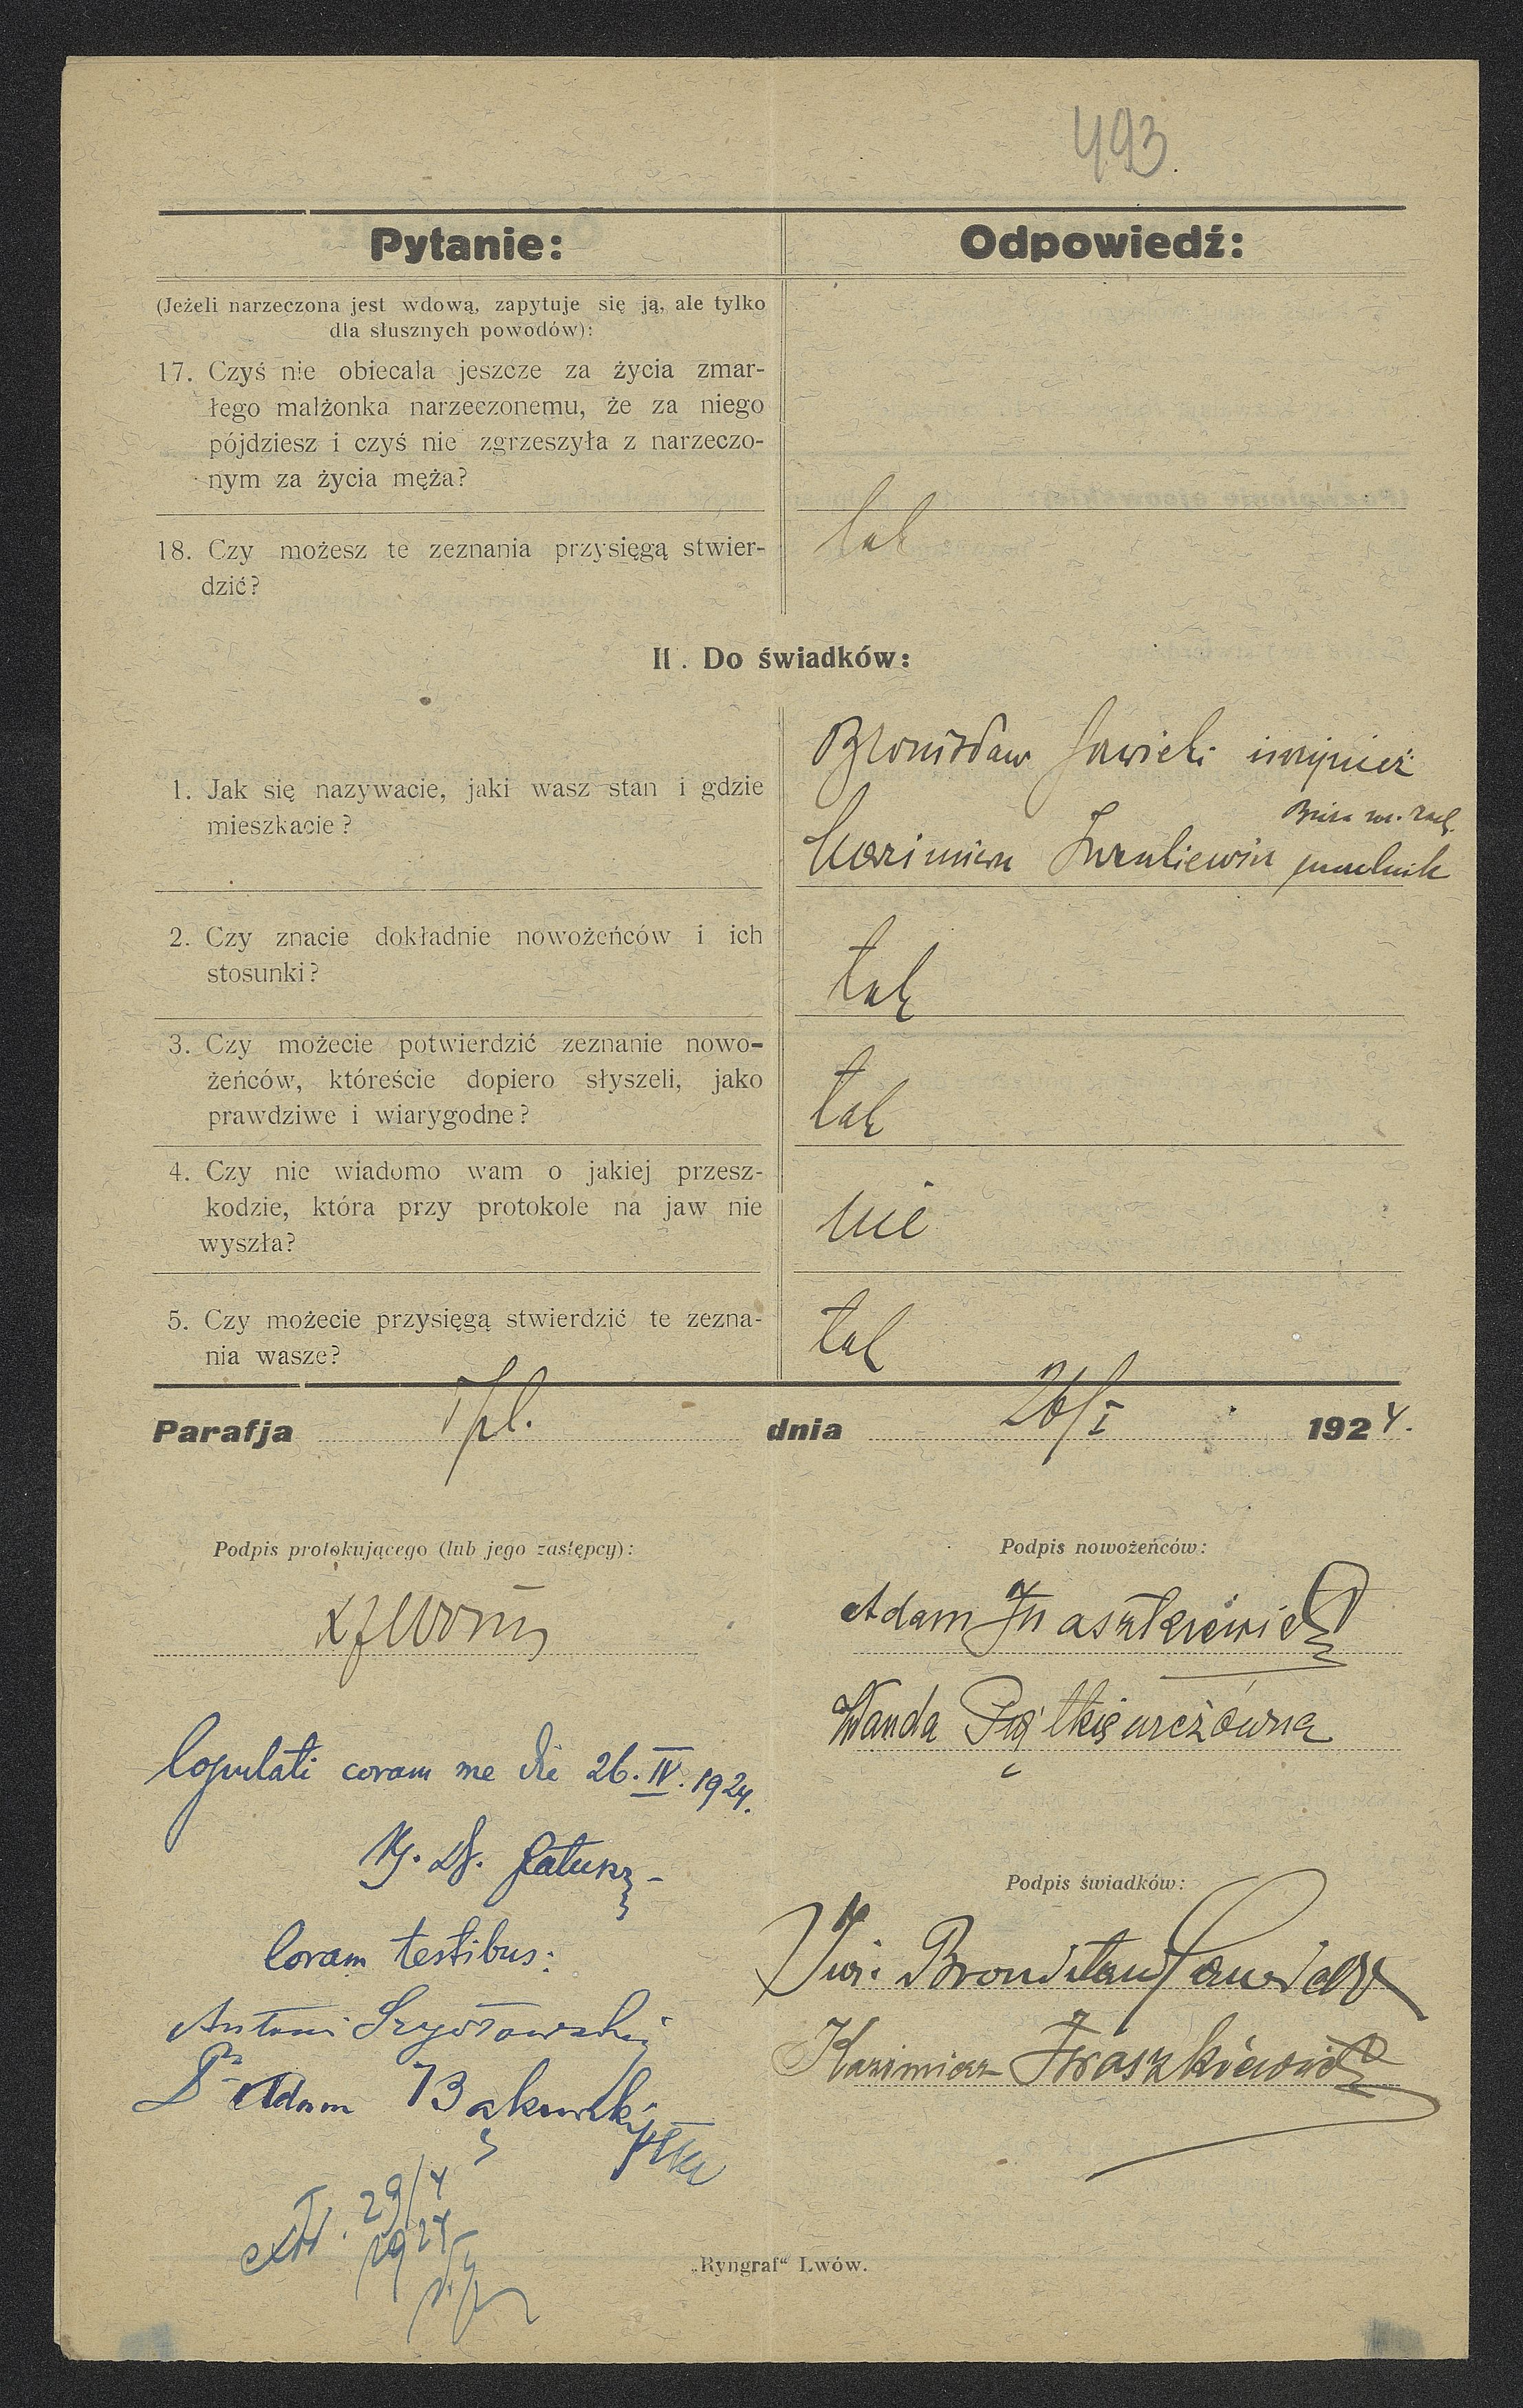 493.
Pytanie:
Odpowiedź:
(Jeżeli narzeczona jest wdową, zapytuje się ją, ale tylko
dla słusznych powodów):
17. Czyś nie obiecała jeszcze za życia zmar-
łego małżonka narzeczonemu, że za niego
pójdziesz i czyś nie zgrzeszyła z narzeczo-
nym za życia męża?
18. Czy możesz te zeznania przysięgą stwier-
dzić?
tak
II. Do świadków:
1. Jak się nazywacie, jaki wasz stan i gdzie
mieszkacie?
Bronisław Sawicki inżynier
Kazimierz
2. Czy znacie dokładnie nowożeńców i ich
stosunki?
tak
3. Czy możecie potwierdzić zeznanie nowo-
żeńców, któreście dopiero słyszeli, jako
prawdziwe i wiarygodne?
tak
4. Czy nie wiadomo wam o jakiej przesz-
kodzie, która przy protokole na jaw nie
wyszła?
nie
5. Czy możecie przysięgą stwierdzić te zezna-
nia wasze?
tak
Parafja dnia 26/I 1924.
Podpis protokującego (lub jego zastępcy):
Podpis nowożeńców:
Adam Iwaszkiewicz
Wanda Piątkiewiczówna
Copulati coram me die 26.IV.1924.
Podpis świadków:
Coram testibus:
Inż. Bronisław Sawicki
Antoni Szydłowski
Kazimierz Iwaszkiewicz
Dr Adam Bąkowski
ext. 29/4
1924
„Ryngraf“ Lwów.